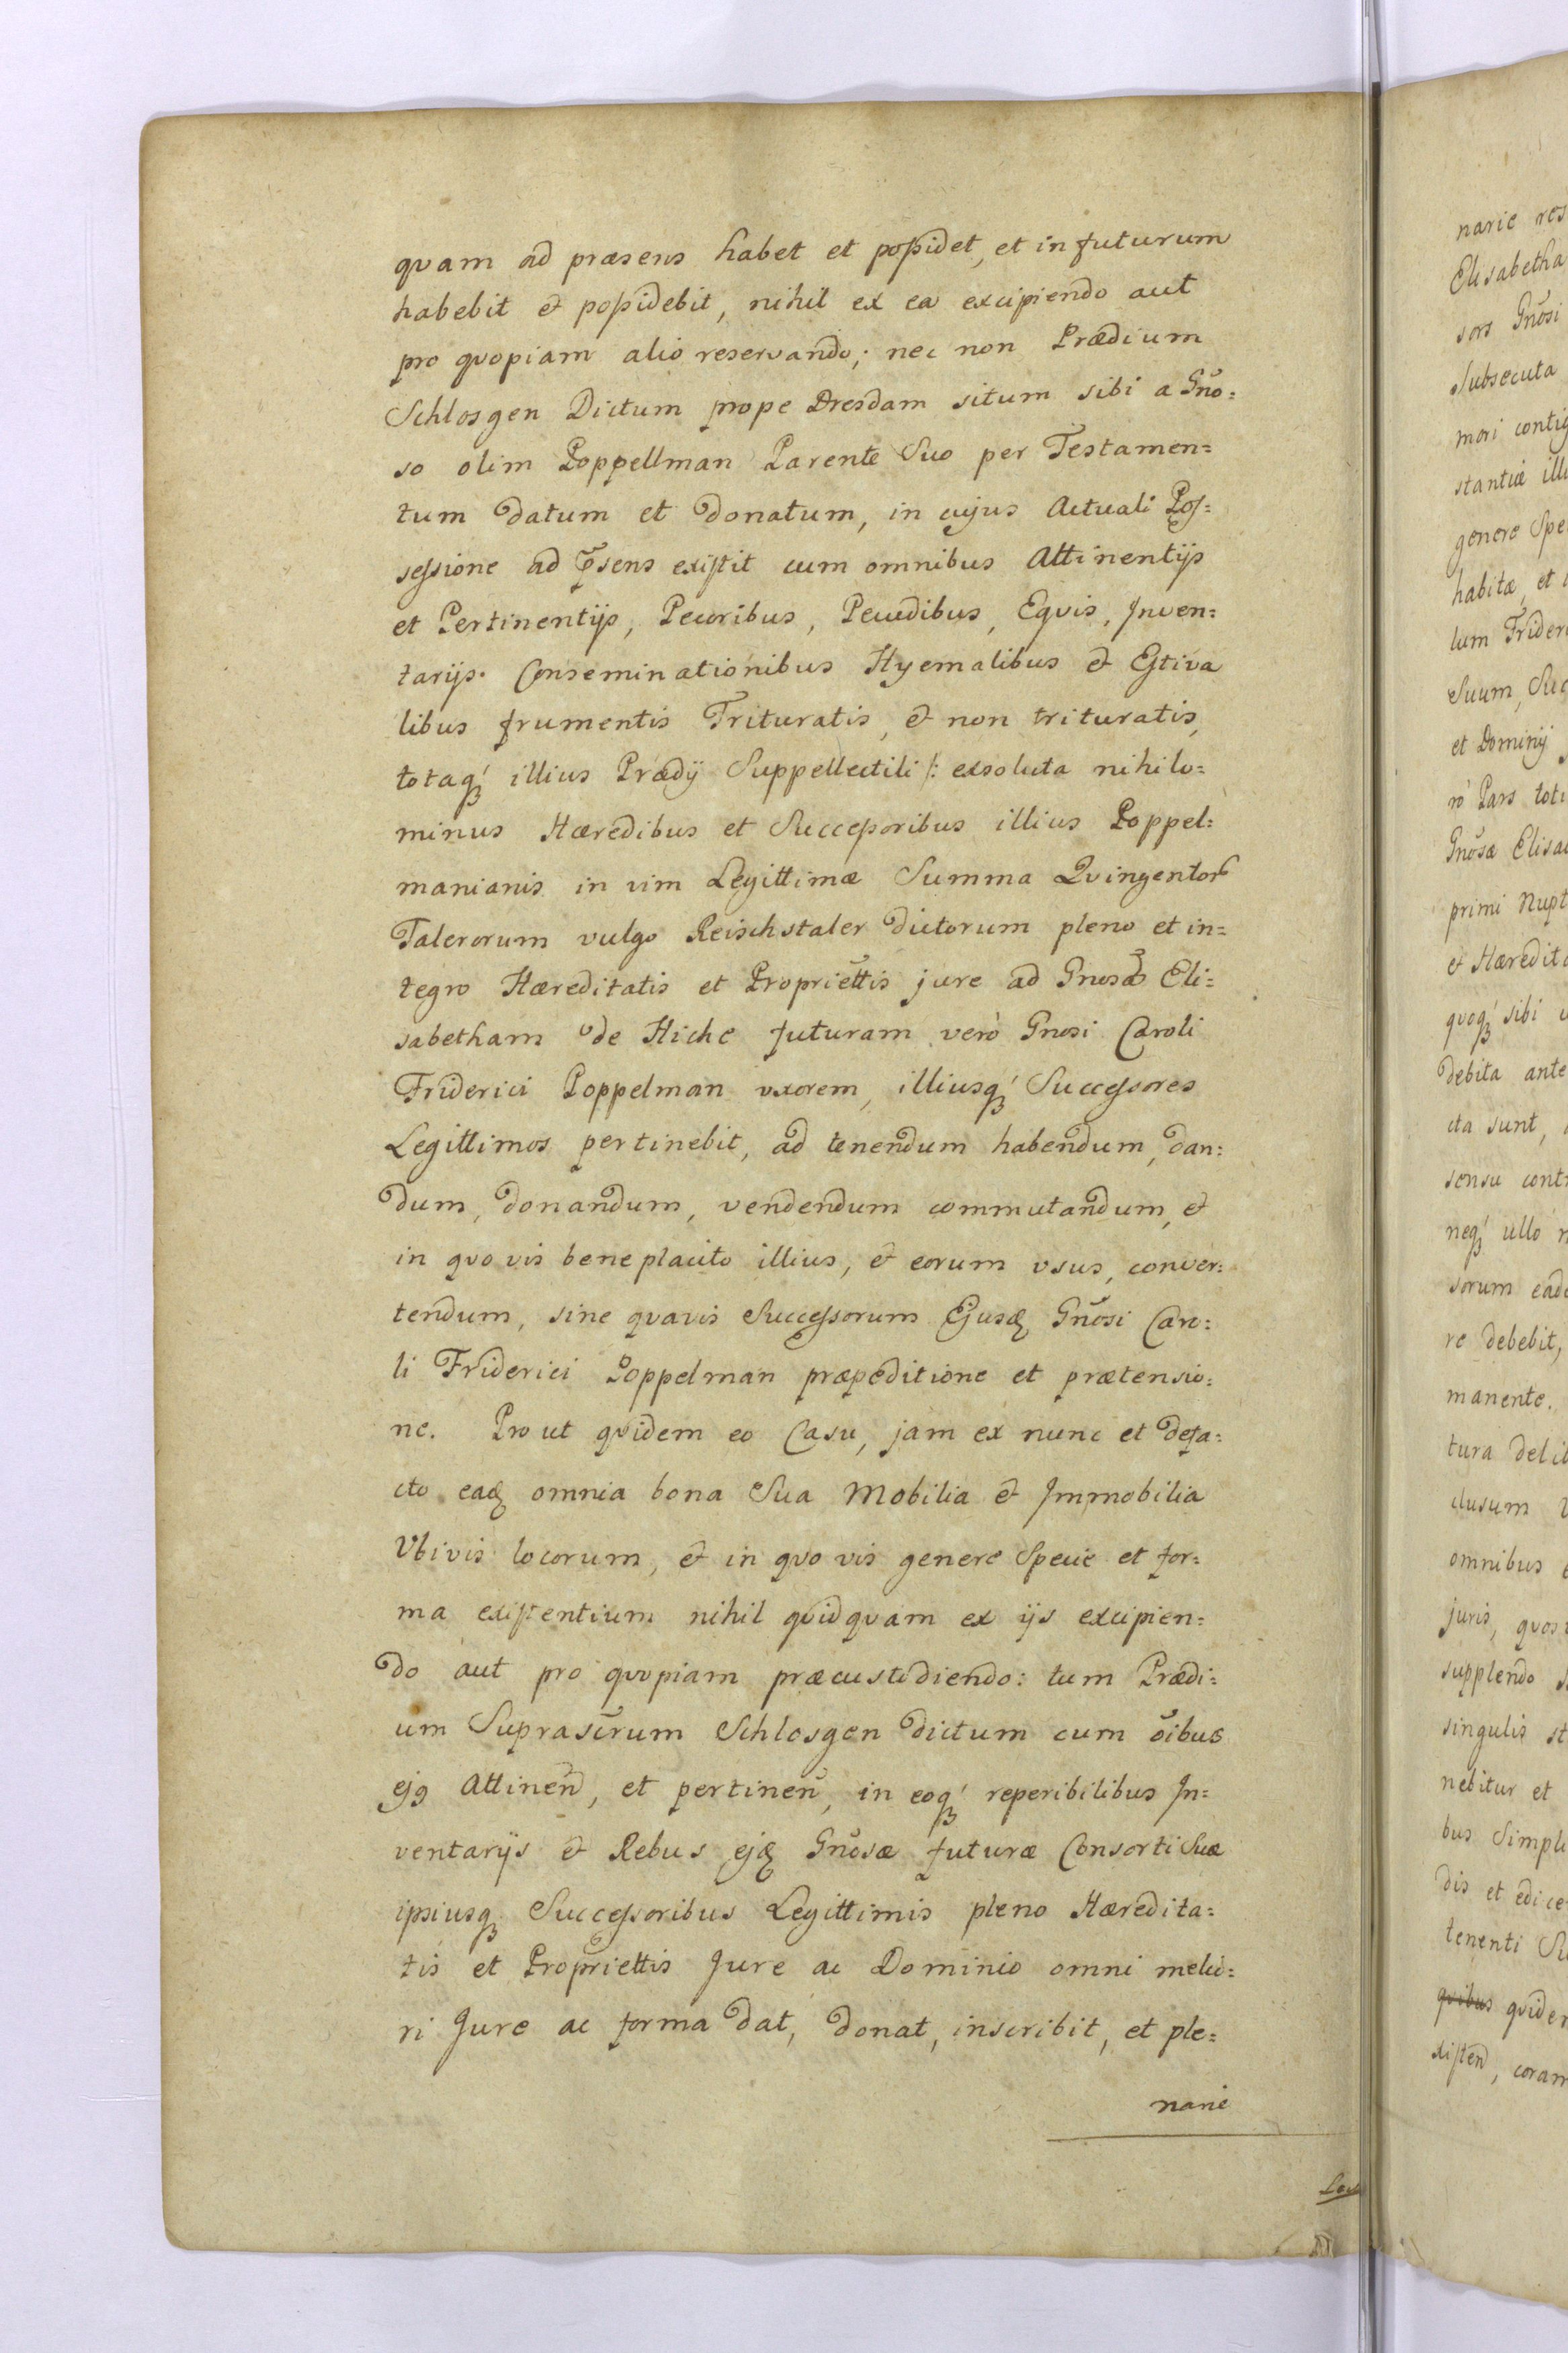 quam ad præsens habet et poßidet, et in futurum
habebit & poßidebit, nihil ex ea excipiendo aut
pro quopiam alio reservando; nec non Prædium
Schlosgen Dictum prope Dresdam situm sibi a Gno=
so olim Poppellman Parente Suo per Testamen=
tum datum et donatum, in cujus Actuali Pos=
sessione ad p̃sens existit cum omnibus Attinentijs
et Pertinentijs, Pecoribus, Pecudibus, Equis, Inven=
tarijs. Conseminationibus Hyemalibus & Estiva
libus frumentis Trituratis, & non trituratis,
totaq́ illius Prædij Suppellectili /: exsoluta nihilo=
minus Hæredibus et Succeßoribus illius Poppel=
manianis in vim Legittimæ Summa Quingentor
Talerorum vulgo Reischstaler dictorum pleno et in=
tegro Hæreditatis et Propriettis jure ad Gnosã Eli=
sabetham de Hiche futuram verò Gnosi Caroli
Friderici Poppelman uxorem, illiusq́ Successores
Legittimos pertinebit, ad tenendum habendum, dan=
dum, donandum, vendendum commutandum, &
in quovis beneplacito illius, & eorum usus, conver=
tendum, sine quavis Successorum Ejusđ Gnosi Caro=
li Friderici Poppelman præpeditione et prætensio=
ne. Prout quidem eo Casu, jam ex nunc et defa=
cto eađ omnia bona Sua Mobilia & Immobilia
Ubivis locorum, & in quo vis genere Specie et for=
ma existentium nihil quidquam ex ijs excipien=
do aut pro quopiam præcustodiendo: tum Prædi=
um Suprascrum Schlosgen dictum cum oibus
ejg Attinen, et pertinen, in eoq́ reperibilibus In=
ventarijs & Rebus ejđ Gnosæ futuræ Consorti Suæ
ipsiusq Successoribus Legittimis pleno Hæredita=
tis et Propriettis Jure ac Dominio omni melio=
ri Jure ac forma dat, donat, inscribit, et ple=
narie
narie res
Elisabetha
sors Gnosi
Subsecuta
mori contig
stantiæ illi
genere Spe
habitæ, et
lum Frideri
Suum, Suc
et Dominij
rò Pars toti
Gnosa Elisa
primi Nupt
& Heredita
quoq́ sibi
debita ante
cta sunt,
sensu cont
neq́ ullo
sorum eade
re debebit,
manente.
tura delib
clusum
omnibus
juris, quos
supplendo
singulis st
nebitur et
bus Simpl
dis et edice
tenenti Su
quibus quidem
xisten, coram